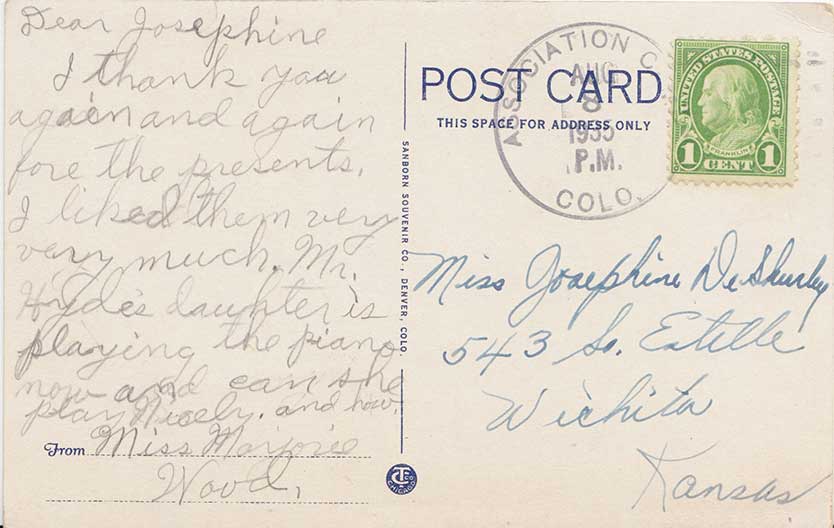 Dear Josephine
I thank you
again and again
fore the presents.
I liked them very
very much. Mr.
Hyde's daughter is
playing the piano
now and can she
play nicely. and how.
From Miss Marjorie
Wood.
SANBORN SOUVENIR CO., DENVER, COLO.
CHICAGO
POST CARD
THIS SPACE FOR ADDRESS ONLY
ASSOCIATION
AUG
8
1935
P.M.
COLO.
UNITED STATES POSTAGE
FRANKLIN
1 CENT 1
Miss Josephine
543 So. Estelle
Wichita
Kansas